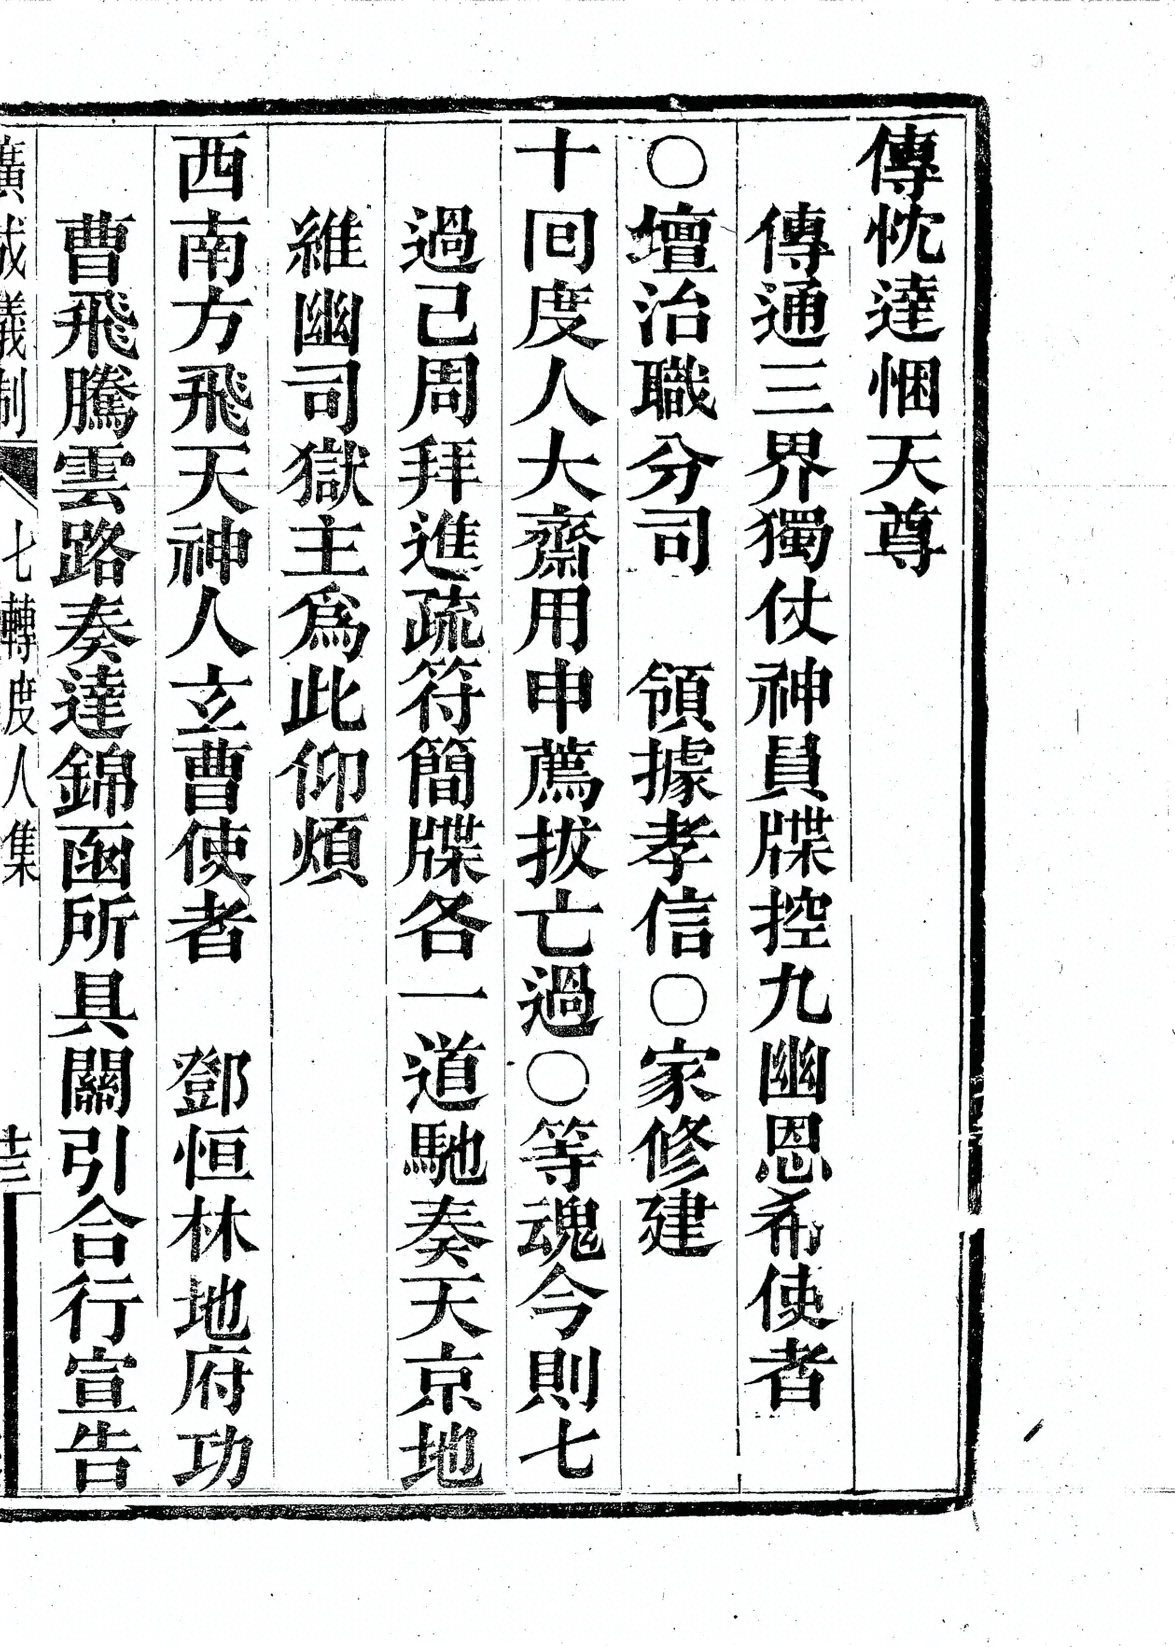 傳忱達悃天尊
傳通三界獨仗神員牒控九幽恩希使者
〇壇治職分司　領據孝信〇家修建
十回度人大齋用申薦拔亡過〇等魂今則七
過己周拜進疏符簡牒各一道馳奏天京地
維幽司獄主爲此仰煩
西南方飛天神人玄曹使者　鄧恒林地府功
曹飛騰雲路奏達錦函所具關引合行宣告
廣成儀制　七轉度人集　廿三